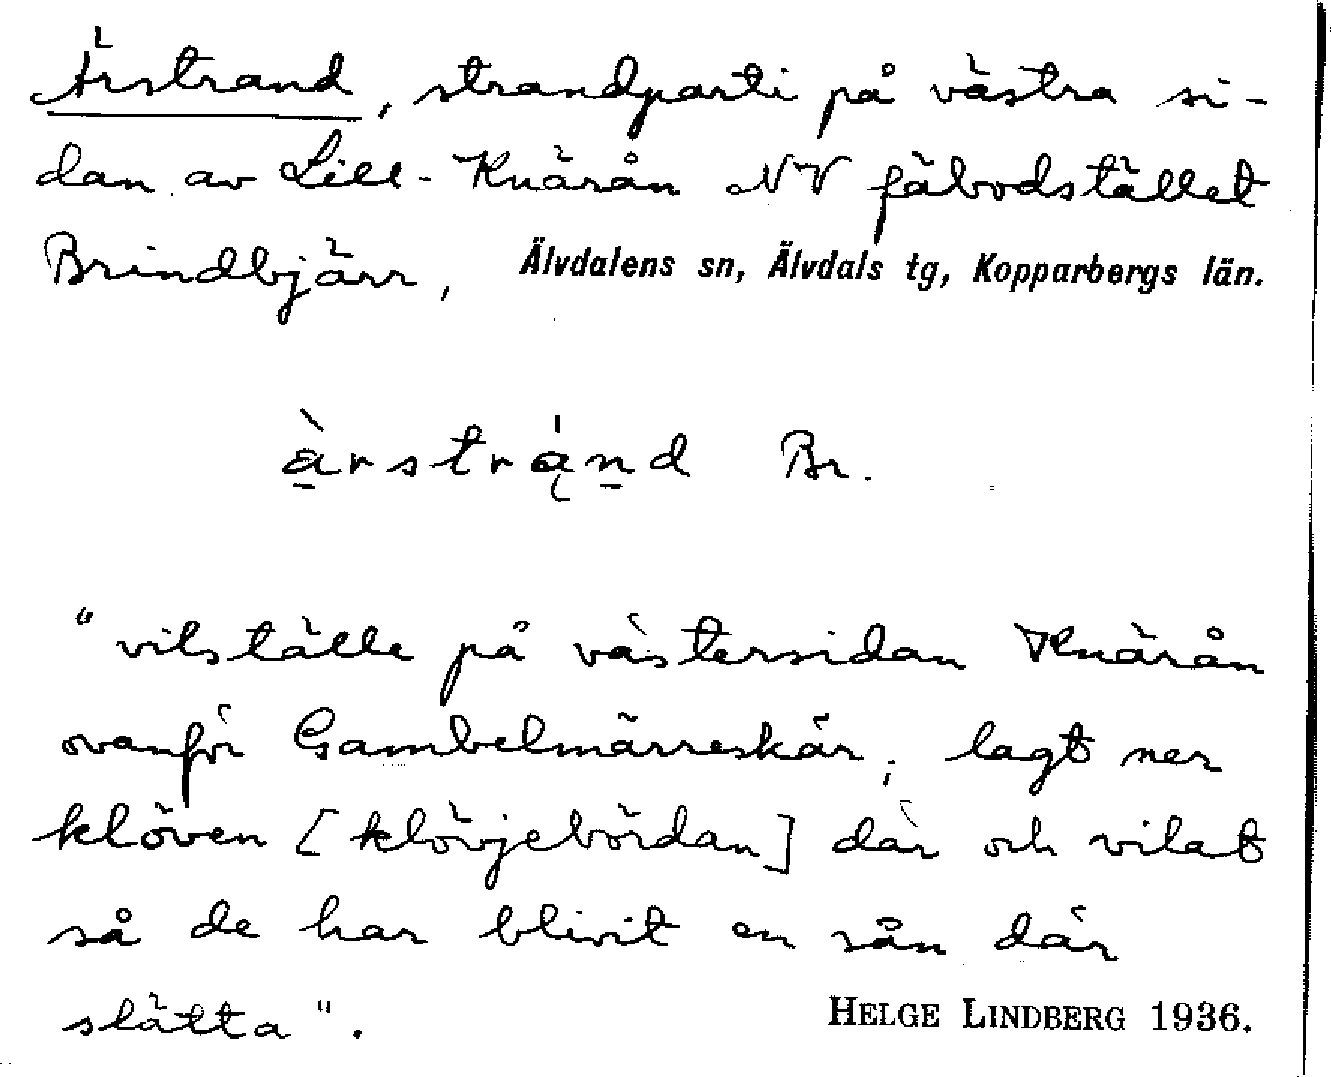 Ärstrand, strandparti på västra si-
dan av Lill-Knärån NV fäbodstället
Brindbjärr, Älvdalens sn, Älvdals tg, Kopparbergs län.
àrstrą́nd Br.
"vilställe på västersidan Knärån
ovanför Gambelmärreskär, lagt ner
klöven [klövjebördan] där och vilat
så de har blivit en sån där
slätta".
HELGE LINDBERG 1936.